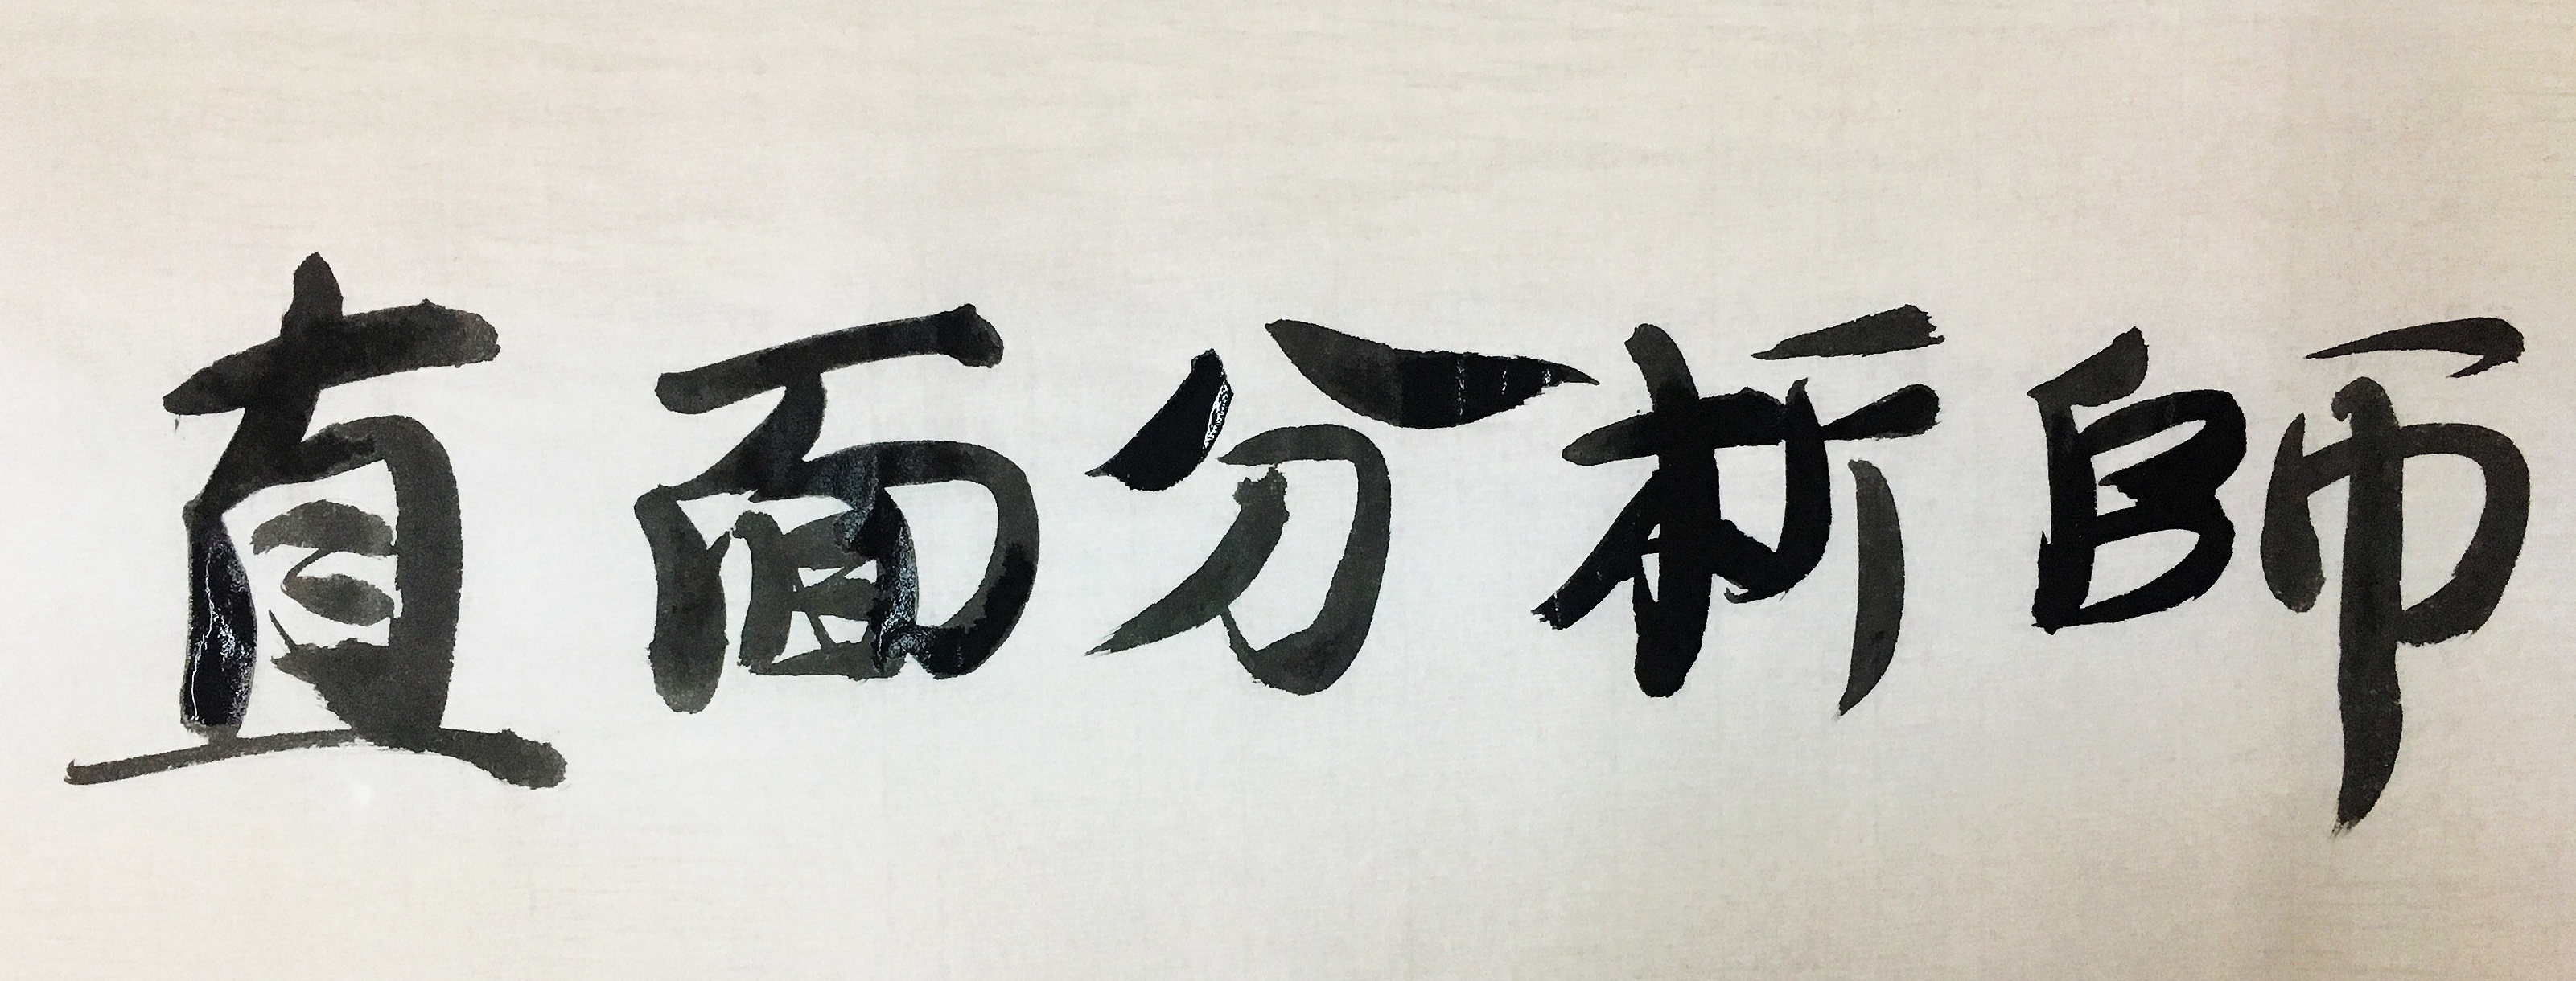 直面分析師